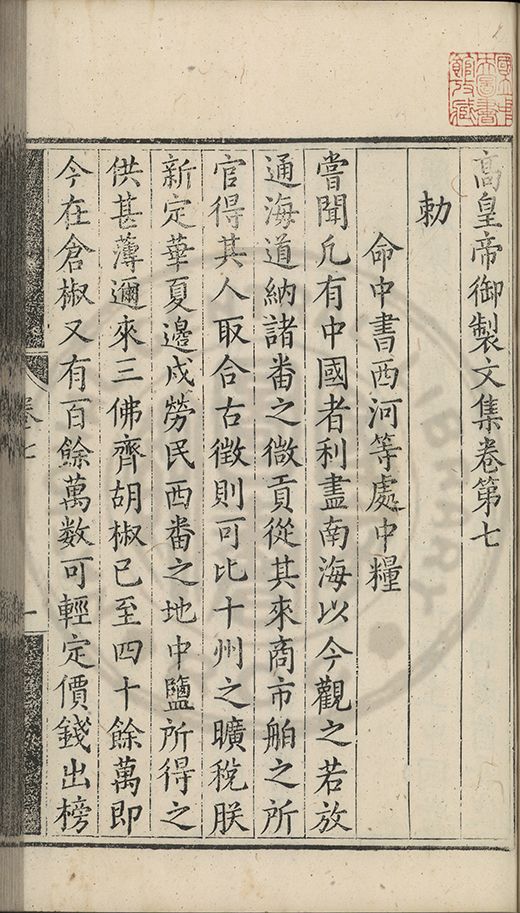 高皇帝御製文集卷第七
勅
命中書西河等處中糧
嘗聞凡有中國者利盡南海以今觀之若放
通海道納諸番之微貢從其來商市舶之所
官得其人取合古徵則可比十州之曠稅朕
新定華夏邊戍勞民西番之地中鹽所得之
供甚薄邇來三佛齊胡椒已至四十餘萬即
今在倉椒又有百餘萬數可輕定價錢出榜
卷七
一